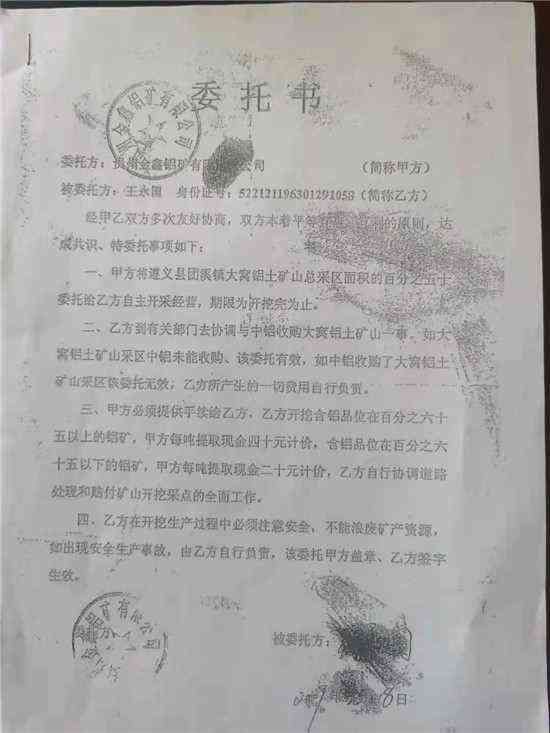 委托书
委托方：贵州金鑫铝矿有限 公司 （简称甲方）
被委托方：王永国 身份证号：522121196301291058（简称乙方）
经甲乙双方多次友好协商，双方本着平等 的原则，达
成共识、特委托事项如下：
一、甲方将遵义县团溪镇大窝铝土矿山总采区面积的百分之五十
委托给乙方自主开采经营，期限为开挖完为止。
二、乙方到有关部门去协调与中铝收购大窝铝土矿山一事。如大
窝铝土矿山采区中铝未能收购、该委托有效，如中铝收购了大窝铝土
矿山采区该委托无效，乙方所产生的一切费用自行负责。
三、甲方必须提供手续给乙方，乙方开挖含铝品位在百分之六十
五以上的铝矿，甲方每吨提取现金四十元计价，含铝品位在百分之六
十五以下的铝矿，甲方每吨提取现金二十元计价，乙方自行协调道路
处理和赔付矿山开挖采点的全面工作。
四、乙方在开挖生产过程中必须注意安全，不能浪废矿产资源，
如出现安全生产事故，由乙方自行负责，该委托甲方盖章、乙方签字
生效。
被委托方：
8日